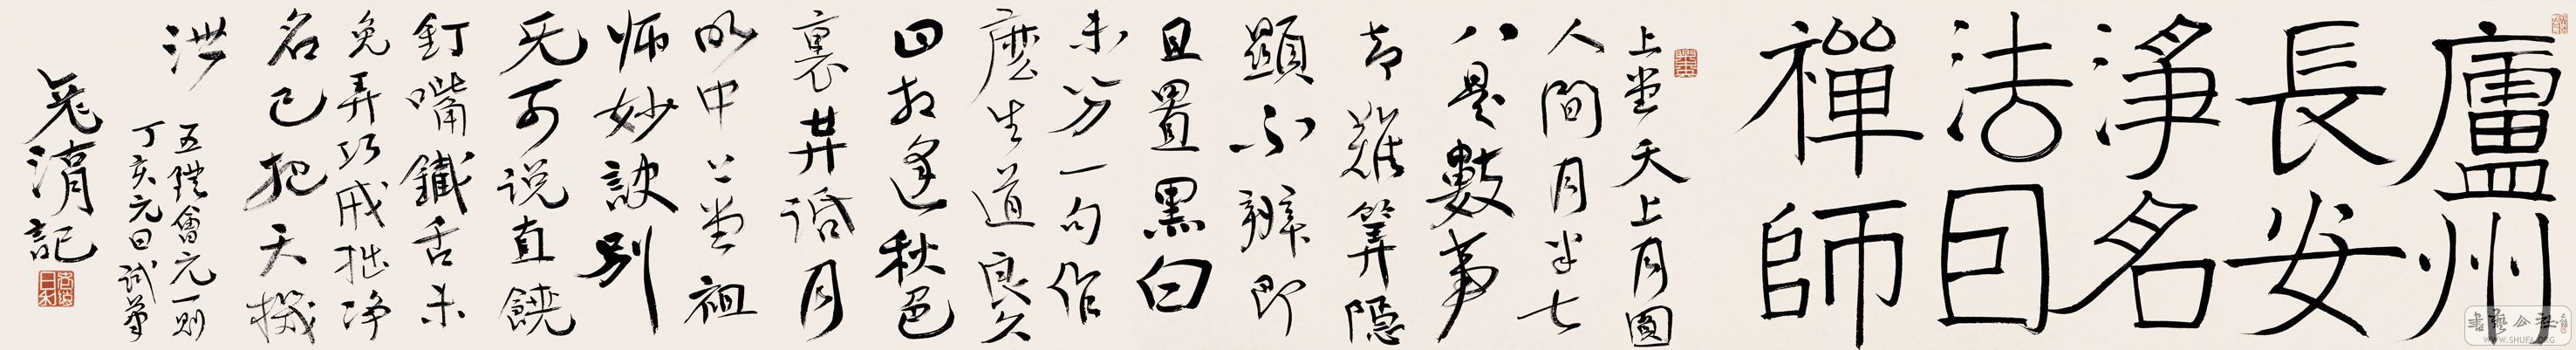 廬州
長安
淨名
法囙
禪師
上堂天上月圓
人間月半七
八是數事
却難筭隱
顯不辨即
且置黑白
未分一句作
麽生道良久
曰相逢秋色
裏共话月
明中上堂祖
师妙訣別
无可说直饒
釘嘴鐵舌未
免弄巧成拙淨
名已把天機
泄
五燈會元一则
丁亥元日試筆
記
書藝公社
WWW.SHUFA.ORG